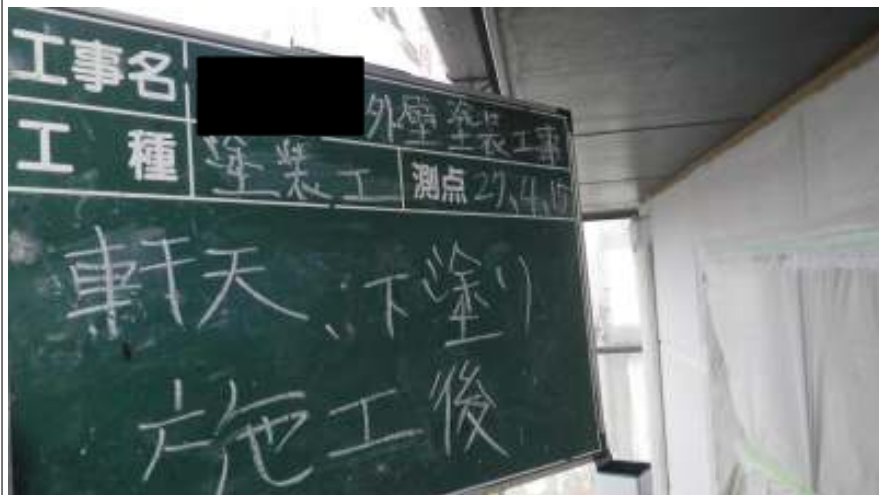 工事名 外壁塗装工事
工種 塗装工 測点 27.4.15
軒天、下塗り
施工後